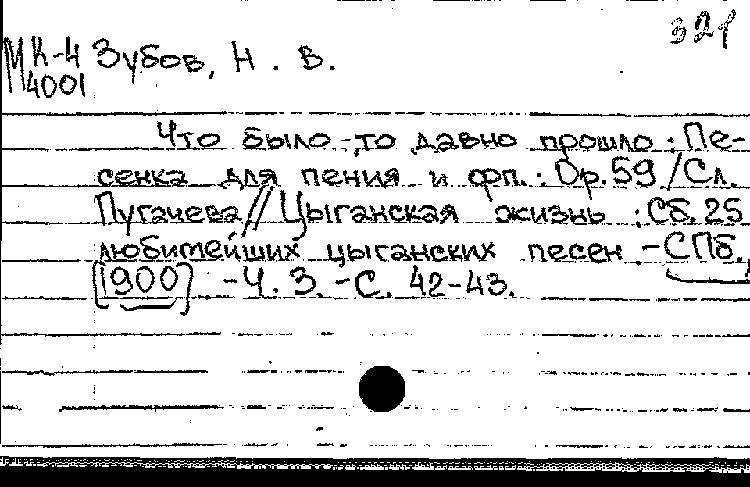 321
МК-4 Зубов, Н. В.
4001
Что было-то давно прошло: Пе-
сенка для пения и фп.: Op. 59 / Сл.
Пугачева // Цыганская жизнь: Сб. 25
любимейших цыганских песен. - СПб.,
[1900] - Ч. 3. - С. 42-43.